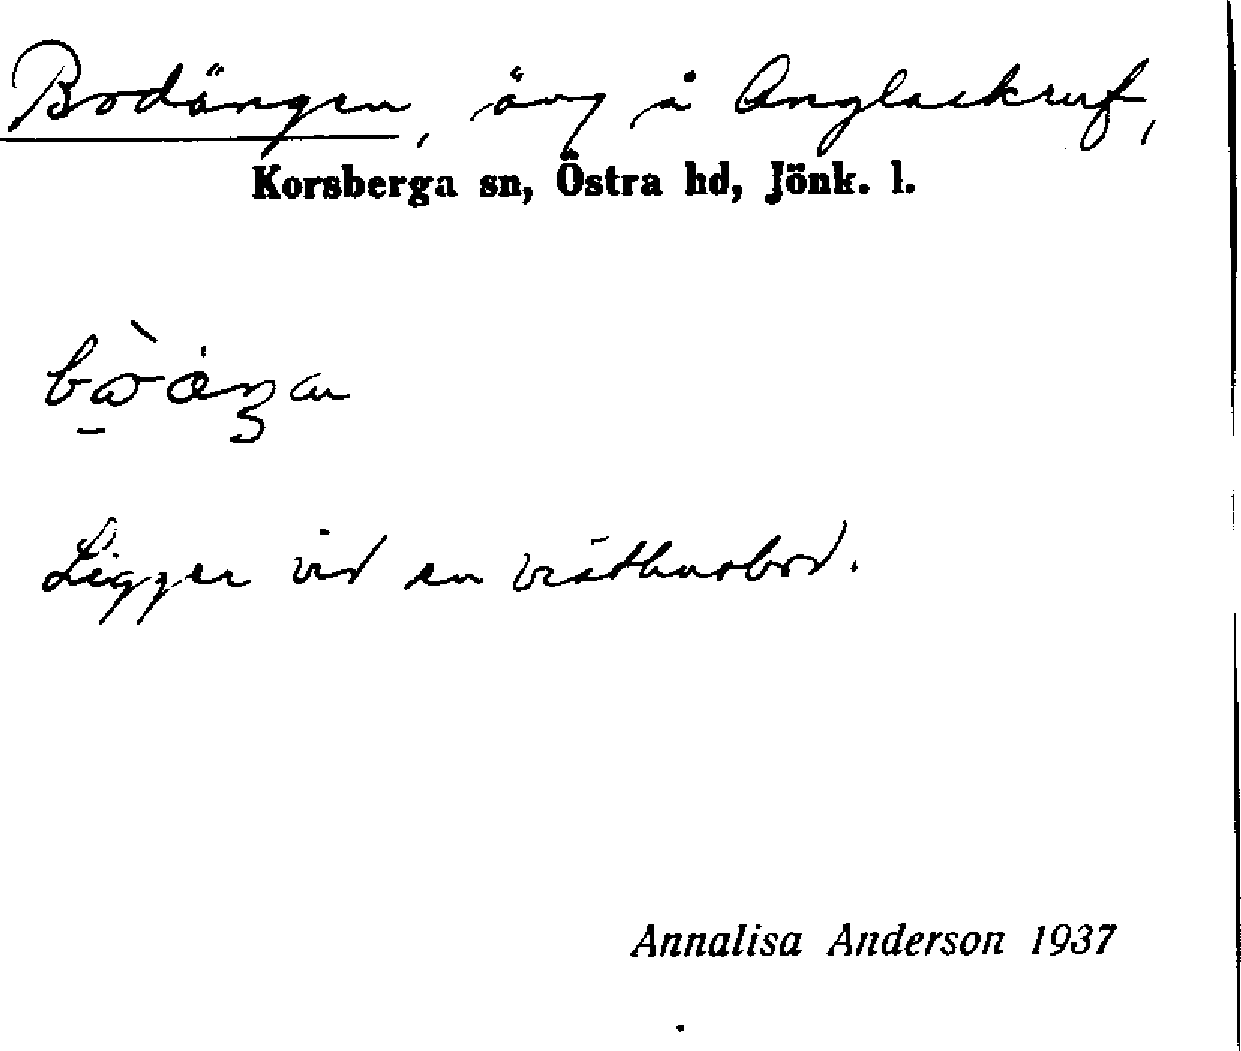 Bodängen, äng å Anglaskruf,
Korsberga sn, Östra hd, Jönk. l.
Ligger vid en
Annalisa Anderson 1937